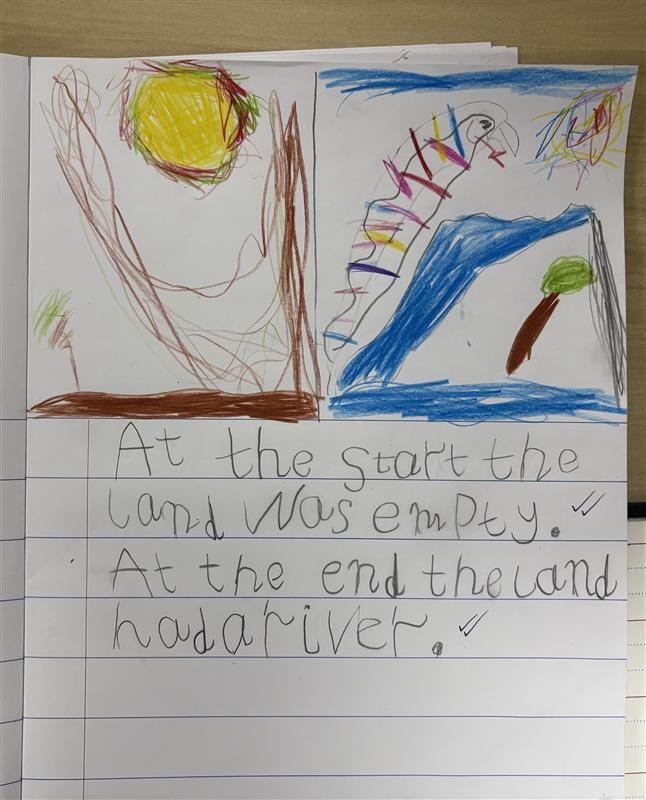 At the start the
land was empty.
At the end the land
had a river.